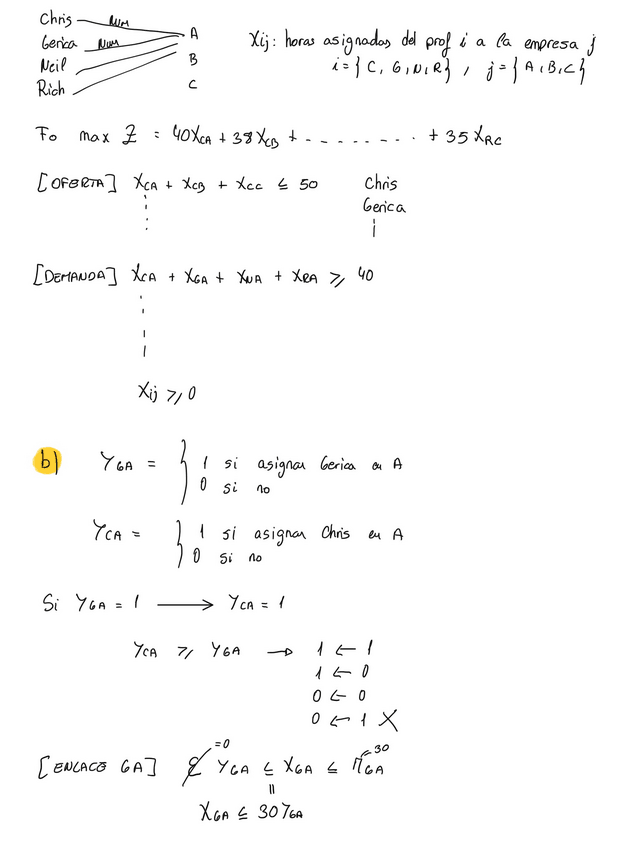 Chris Num A
Gerica Num
Neil B
Rich C
Xij: horas asignadas del prof i a la empresa j
i={C, G, N, R}, j={A, B, C}
Fo max Z = 40XCA + 38XCB + - - - - - - - - + 35XRC
[OFERTA] XCA + XCB + XCC ≤ 50 Chris
Gerica
[DEMANDA] XCA + XGA + XNA + XRA ≥ 40
Xij ≥ 0
b) YGA = { 1 si asignar Gerica en A
0 si no
YCA = { 1 si asignar Chris en A
0 si no
Si YGA = 1 → YCA = 1
YCA ≥ YGA → 1 ← 1
1 ← 0
0 ← 0
0 ← 1 X
[ENLACE GA] =0 YGA ≤ XGA ≤ MGA =30
XGA ≤ 30YGA